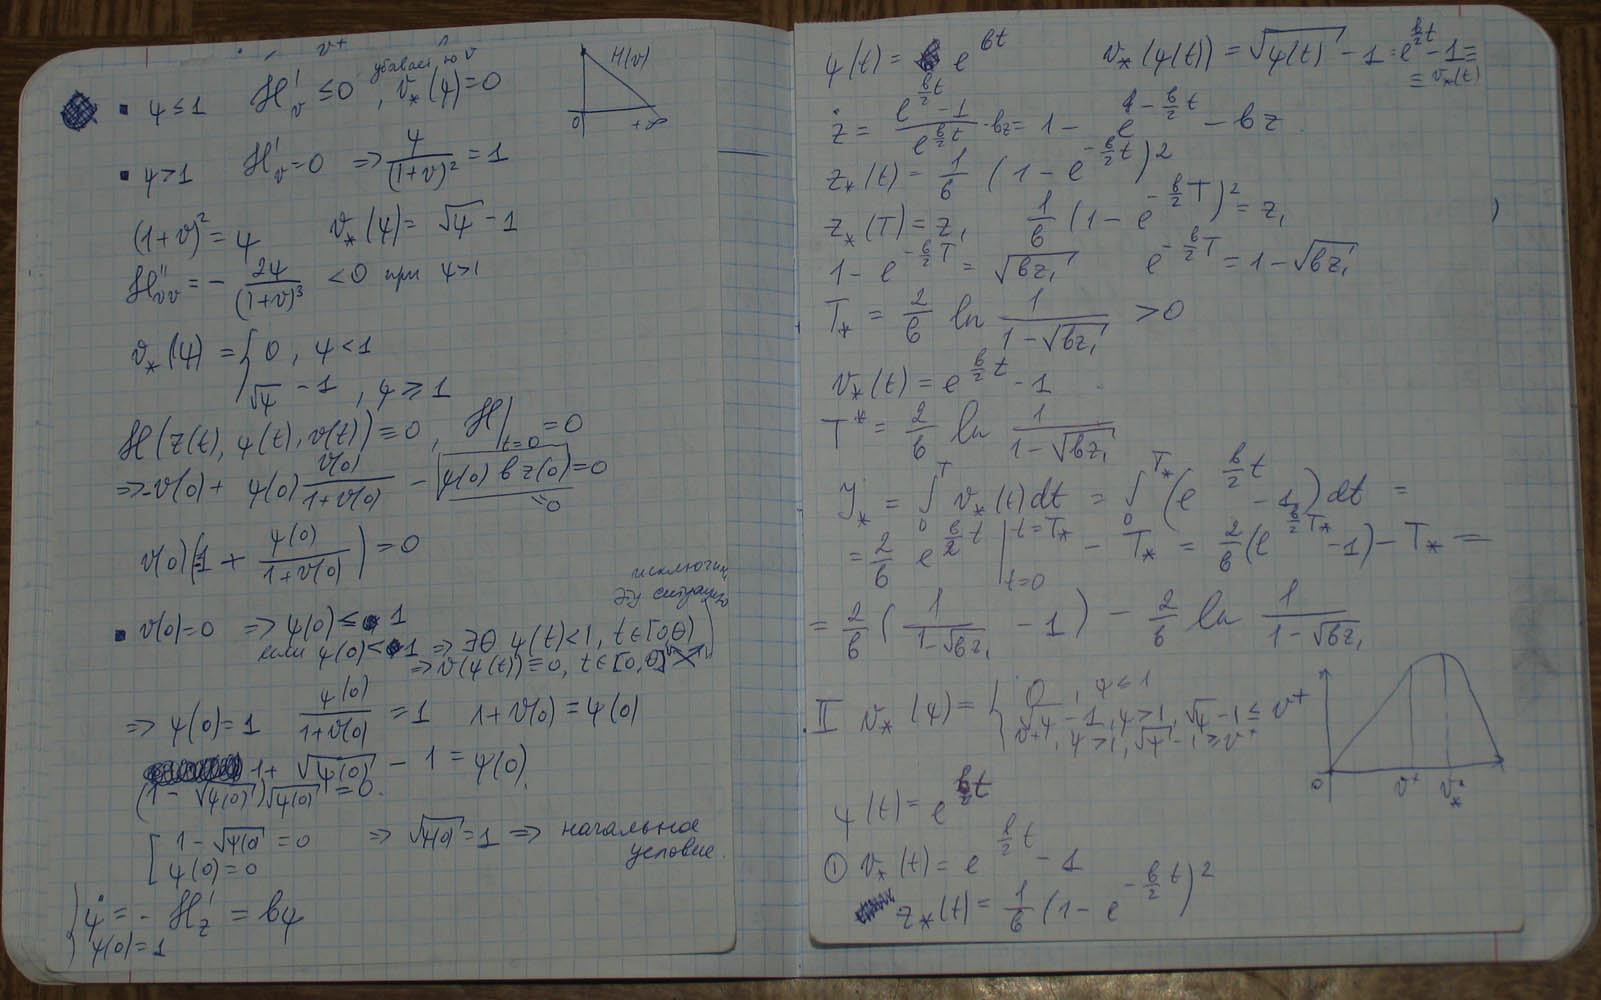 v⁺
убывает по v
▪ ψ ≤ 1   ℋ'ᵥ ≤ 0 , v_*(ψ) = 0
H(v)
0   +∞
▪ ψ > 1   ℋ'ᵥ = 0 ⇒ ψ/(1+v)² = 1
(1+v)² = ψ   v_*(ψ) = √ψ - 1
ℋ''ᵥᵥ = - 2ψ/(1+v)³ < 0 при ψ > 1
v_*(ψ) = { 0 , ψ < 1
√ψ - 1 , ψ ≥ 1
ℋ(z(t), ψ(t), v(t)) ≡ 0 , ℋ|_{t=0} = 0
⇒ -v(0) + ψ(0) v(0)/(1+v(0)) - ψ(0) b z(0) = 0
=0
v(0)(-1 + ψ(0)/(1+v(0))) = 0
исключим
эту ситуацию
▪ v(0) = 0 ⇒ ψ(0) ≤ 1
если ψ(0) < 1 ⇒ ∃θ ψ(t) < 1, t ∈ [0,θ)
⇒ v(ψ(t)) ≡ 0, t ∈ [0,θ]
⇒ ψ(0) = 1   ψ(0)/(1+v(0)) = 1   1 + v(0) = ψ(0)
1 + √ψ(0) - 1 = ψ(0)
(1 - √ψ(0))√ψ(0) = 0.
[ 1 - √ψ(0) = 0 ⇒ √ψ(0) = 1 ⇒ начальное
ψ(0) = 0   условие.
{ ψ̇ = - ℋ'_z = bψ
ψ(0) = 1
ψ(t) = e^{bt}   v_*(ψ(t)) = √ψ(t) - 1 = e^{b/2 t} - 1 =
≡ v_*(t)
ż = (e^{b/2 t} - 1)/e^{b/2 t} - bz = 1 - e^{-b/2 t} - bz
z_*(t) = 1/b (1 - e^{-b/2 t})²
z_*(T) = z₁   1/b (1 - e^{-b/2 T})² = z₁
1 - e^{-b/2 T} = √bz₁   e^{-b/2 T} = 1 - √bz₁
T_* = 2/b ln 1/(1 - √bz₁) > 0
v_*(t) = e^{b/2 t} - 1
T* = 2/b ln 1/(1 - √bz₁)
J_* = ∫₀ᵀ v_*(t)dt = ∫₀^{T_*} (e^{b/2 t} - 1)dt =
= 2/b e^{b/2 t} |_{t=0}^{t=T_*} - T_* = 2/b (e^{b/2 T_*} - 1) - T_* =
= 2/b (1/(1-√bz₁) - 1) - 2/b ln 1/(1-√bz₁)
II v_*(ψ) = { 0 , ψ ≤ 1
√ψ - 1, ψ > 1, √ψ - 1 ≤ v⁺
v⁺, ψ > 1, √ψ - 1 ≥ v⁺
0   v⁺   v_*
ψ(t) = e^{bt}
① v_*(t) = e^{b/2 t} - 1
z_*(t) = 1/b (1 - e^{-b/2 t})²